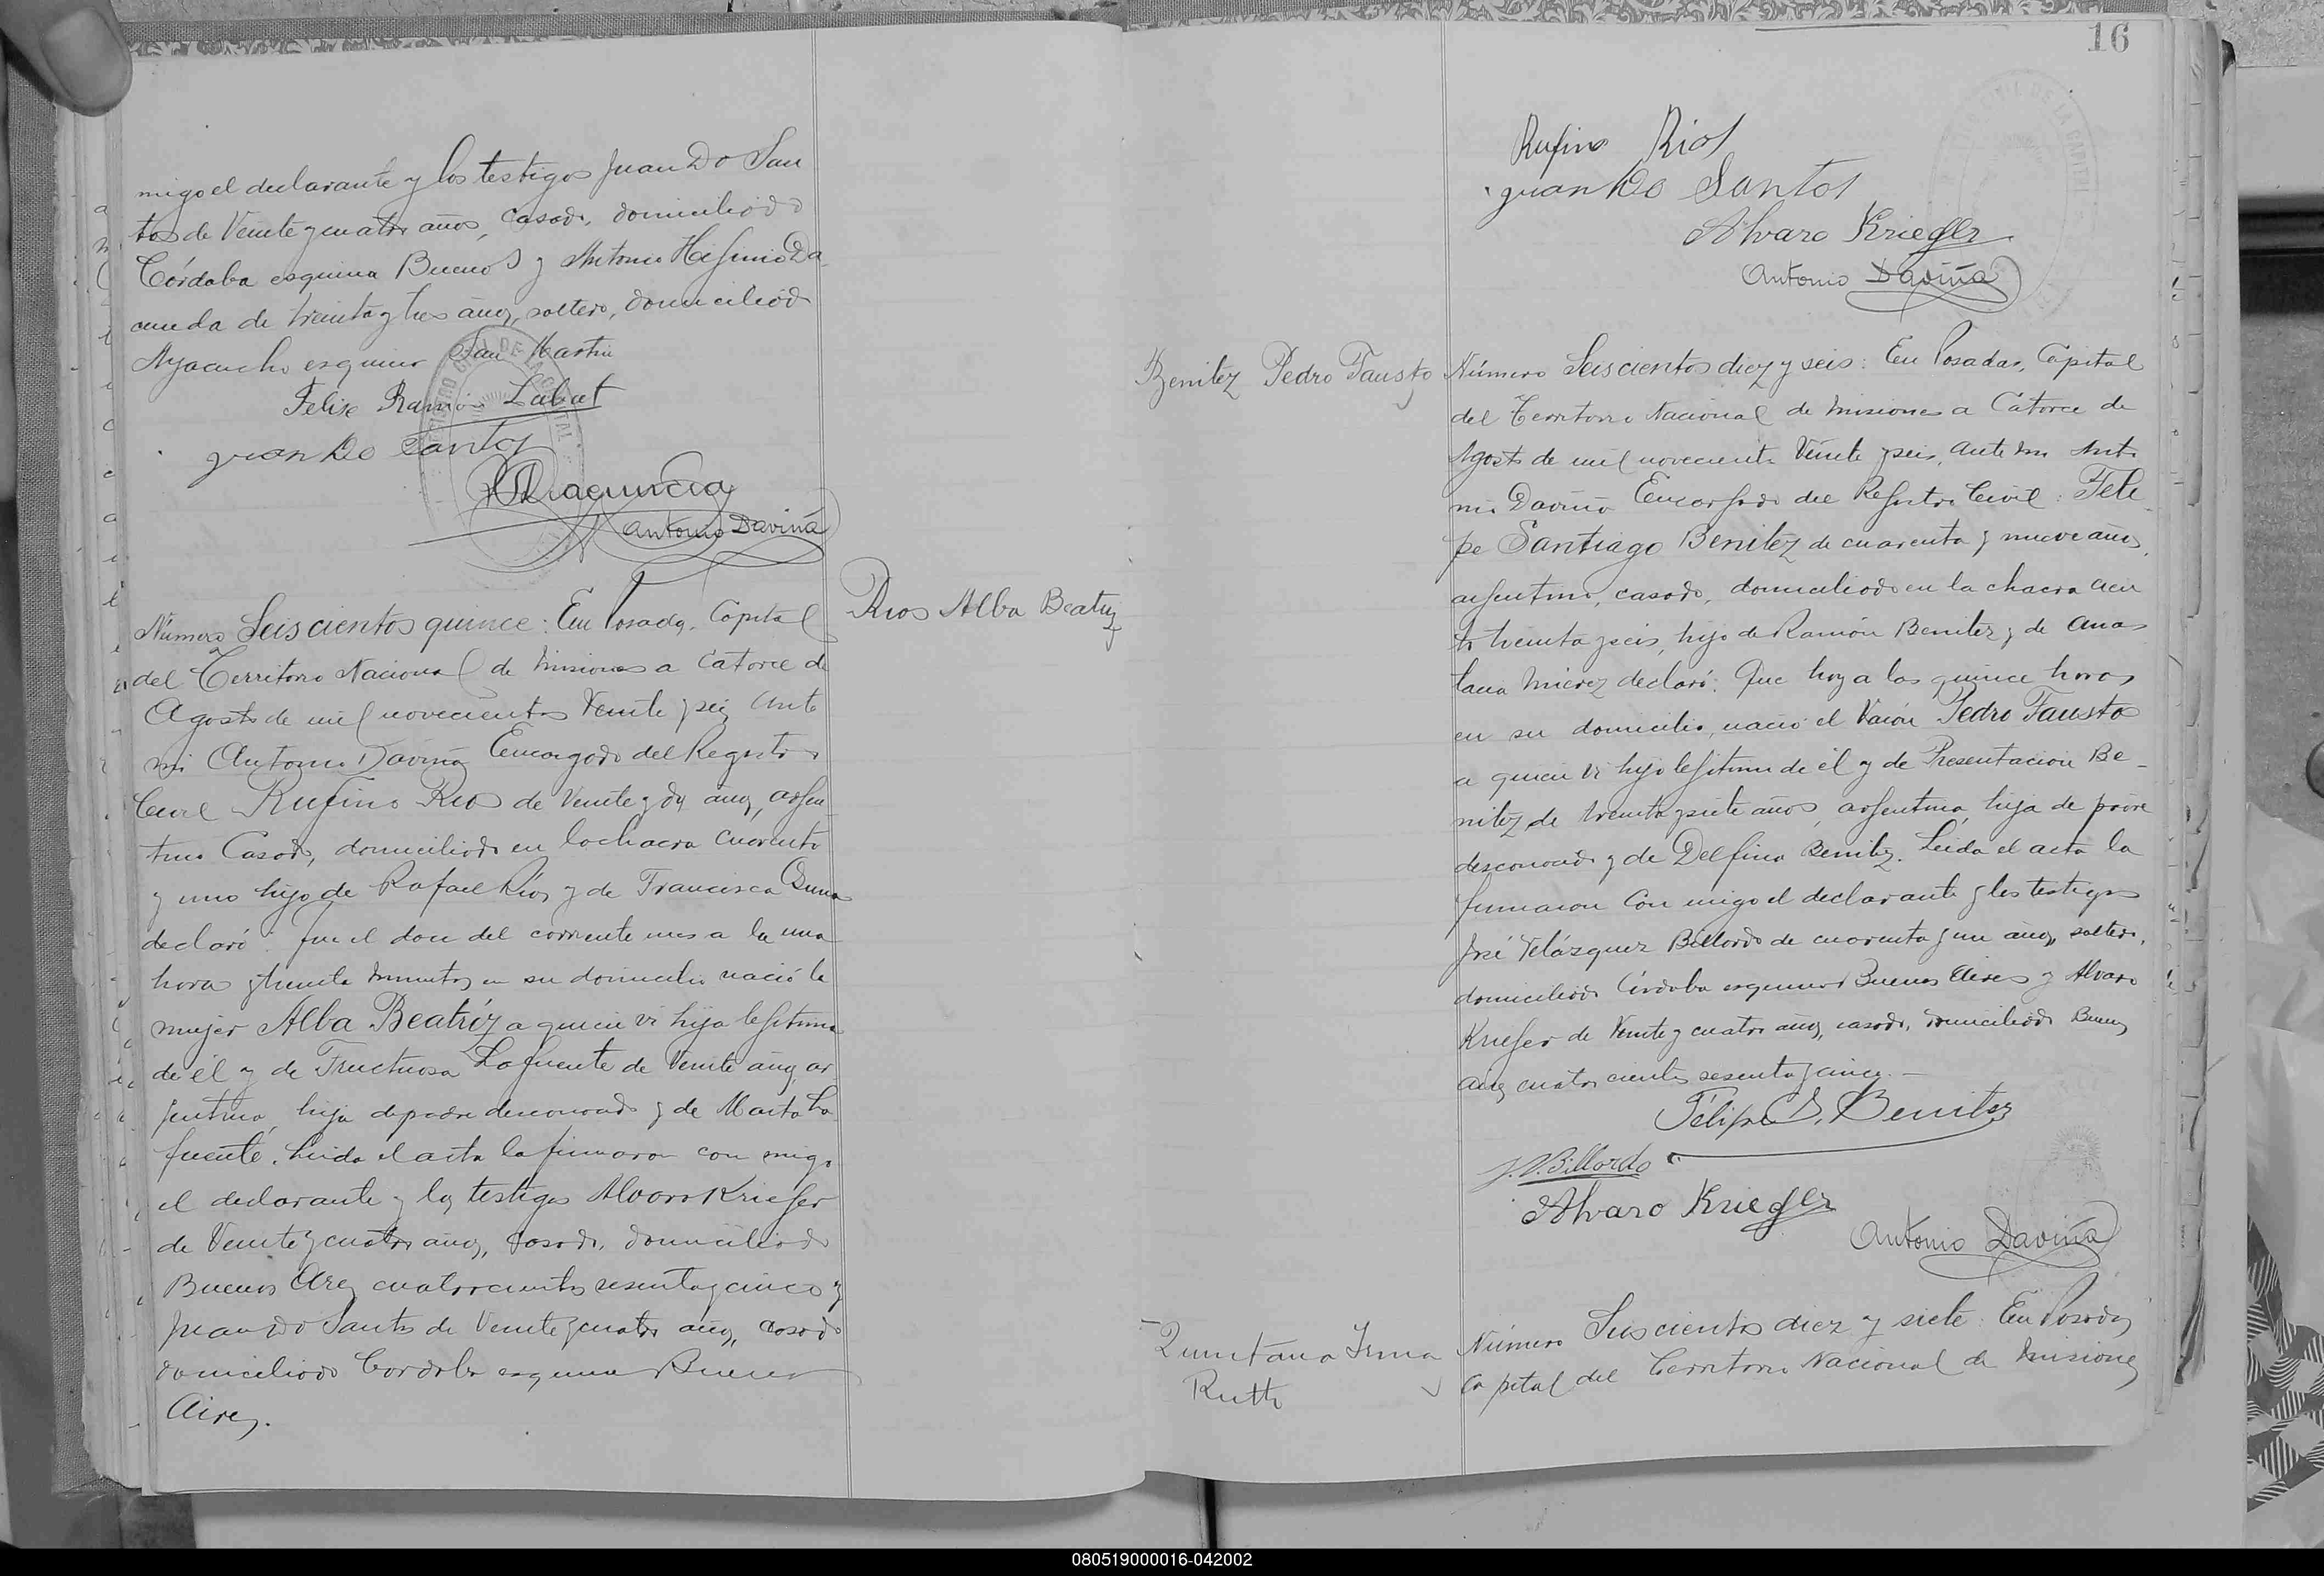 migo el declarante y los testigos Juan Do San
tos de Veinte y cuatro años, casado, domiciliado
Córdoba esquina Buenos y Antonio Higinio Da
de treinta y tres años, soltero, domiciliado
Ayacucho esquina San Martin
Felix Ramón Labat
Juan Do Santos
Antonio Daviña
Número Seiscientos quince: En Posadas, Capital
del Territorio Nacional de Misiones a Catorce de
Agosto de mil novecientos Veinte y seis ante
mi Antonio Daviña Encargado del Registro
Civil Rufino Rios de Veinte y dos años, argen
tino Casado, domiciliado en la chacra cuarenta
y uno hijo de Rafael Ríos y de Francisca
declaró: que el doce del corriente mes a la una
hora y treinta minutos en su domicilio nació la
mujer Alba Beatríz a quien vi hija legitima
de él y de Fructuosa Lafuente de Veinte años, ar
gentina, hija de padre desconocido y de Marta La
fuente. Leida el acta la firmaron con migo
el declarante y los testigos Alvaro Krieger
de Veinte y cuatro años, casado, domiciliado
Buenos Aires cuatrocientos sesenta y cinco y
Juan Do Santos de Veinte y cuatro años, casado
domiciliado Cordoba esquina Buenos
Aires.
Rios Alba Beatriz
16
Rufino Rios
Juan Do Santos
Alvaro Krieger
Antonio Daviña
Benitez Pedro Fausto
Número Seiscientos diez y seis: En Posadas, Capital
del Territorio Nacional de Misiones a Catorce de
Agosto de mil novecientos Veinte y seis, ante mi Anto
nio Daviña Encargado del Registro Civil: Feli
pe Santiago Benitez de cuarenta y nueve años,
argentino, casado, domiciliado en la chacra cien
to treinta y seis, hijo de Ramón Benitez y de Anas
tacia declaró: Que hoy a las quince horas
en su domicilio, nació el Varón Pedro Fausto
a quien vi hijo legitimo de él y de Presentación Be-
nitez, de treinta y siete años, argentina, hija de padre
desconocido y de Delfina Benitez. Leida el acta la
firmaron con migo el declarante y los testigos
José Velázquez Billordo de cuarenta y un años, soltero,
domiciliado Córdoba esquina Buenos Aires y Alvaro
Krieger de Veinte y cuatro años, casado, domiciliado Buenos
Aires cuatrocientos sesenta y cinco.-
Felipe S. Benitez
J.V. Billordo
Alvaro Krieger
Antonio Daviña
Quintana Irma
Ruth
Número Seiscientos diez y siete: En Posadas
Capital del Territorio Nacional de Misiones
080519000016-042002